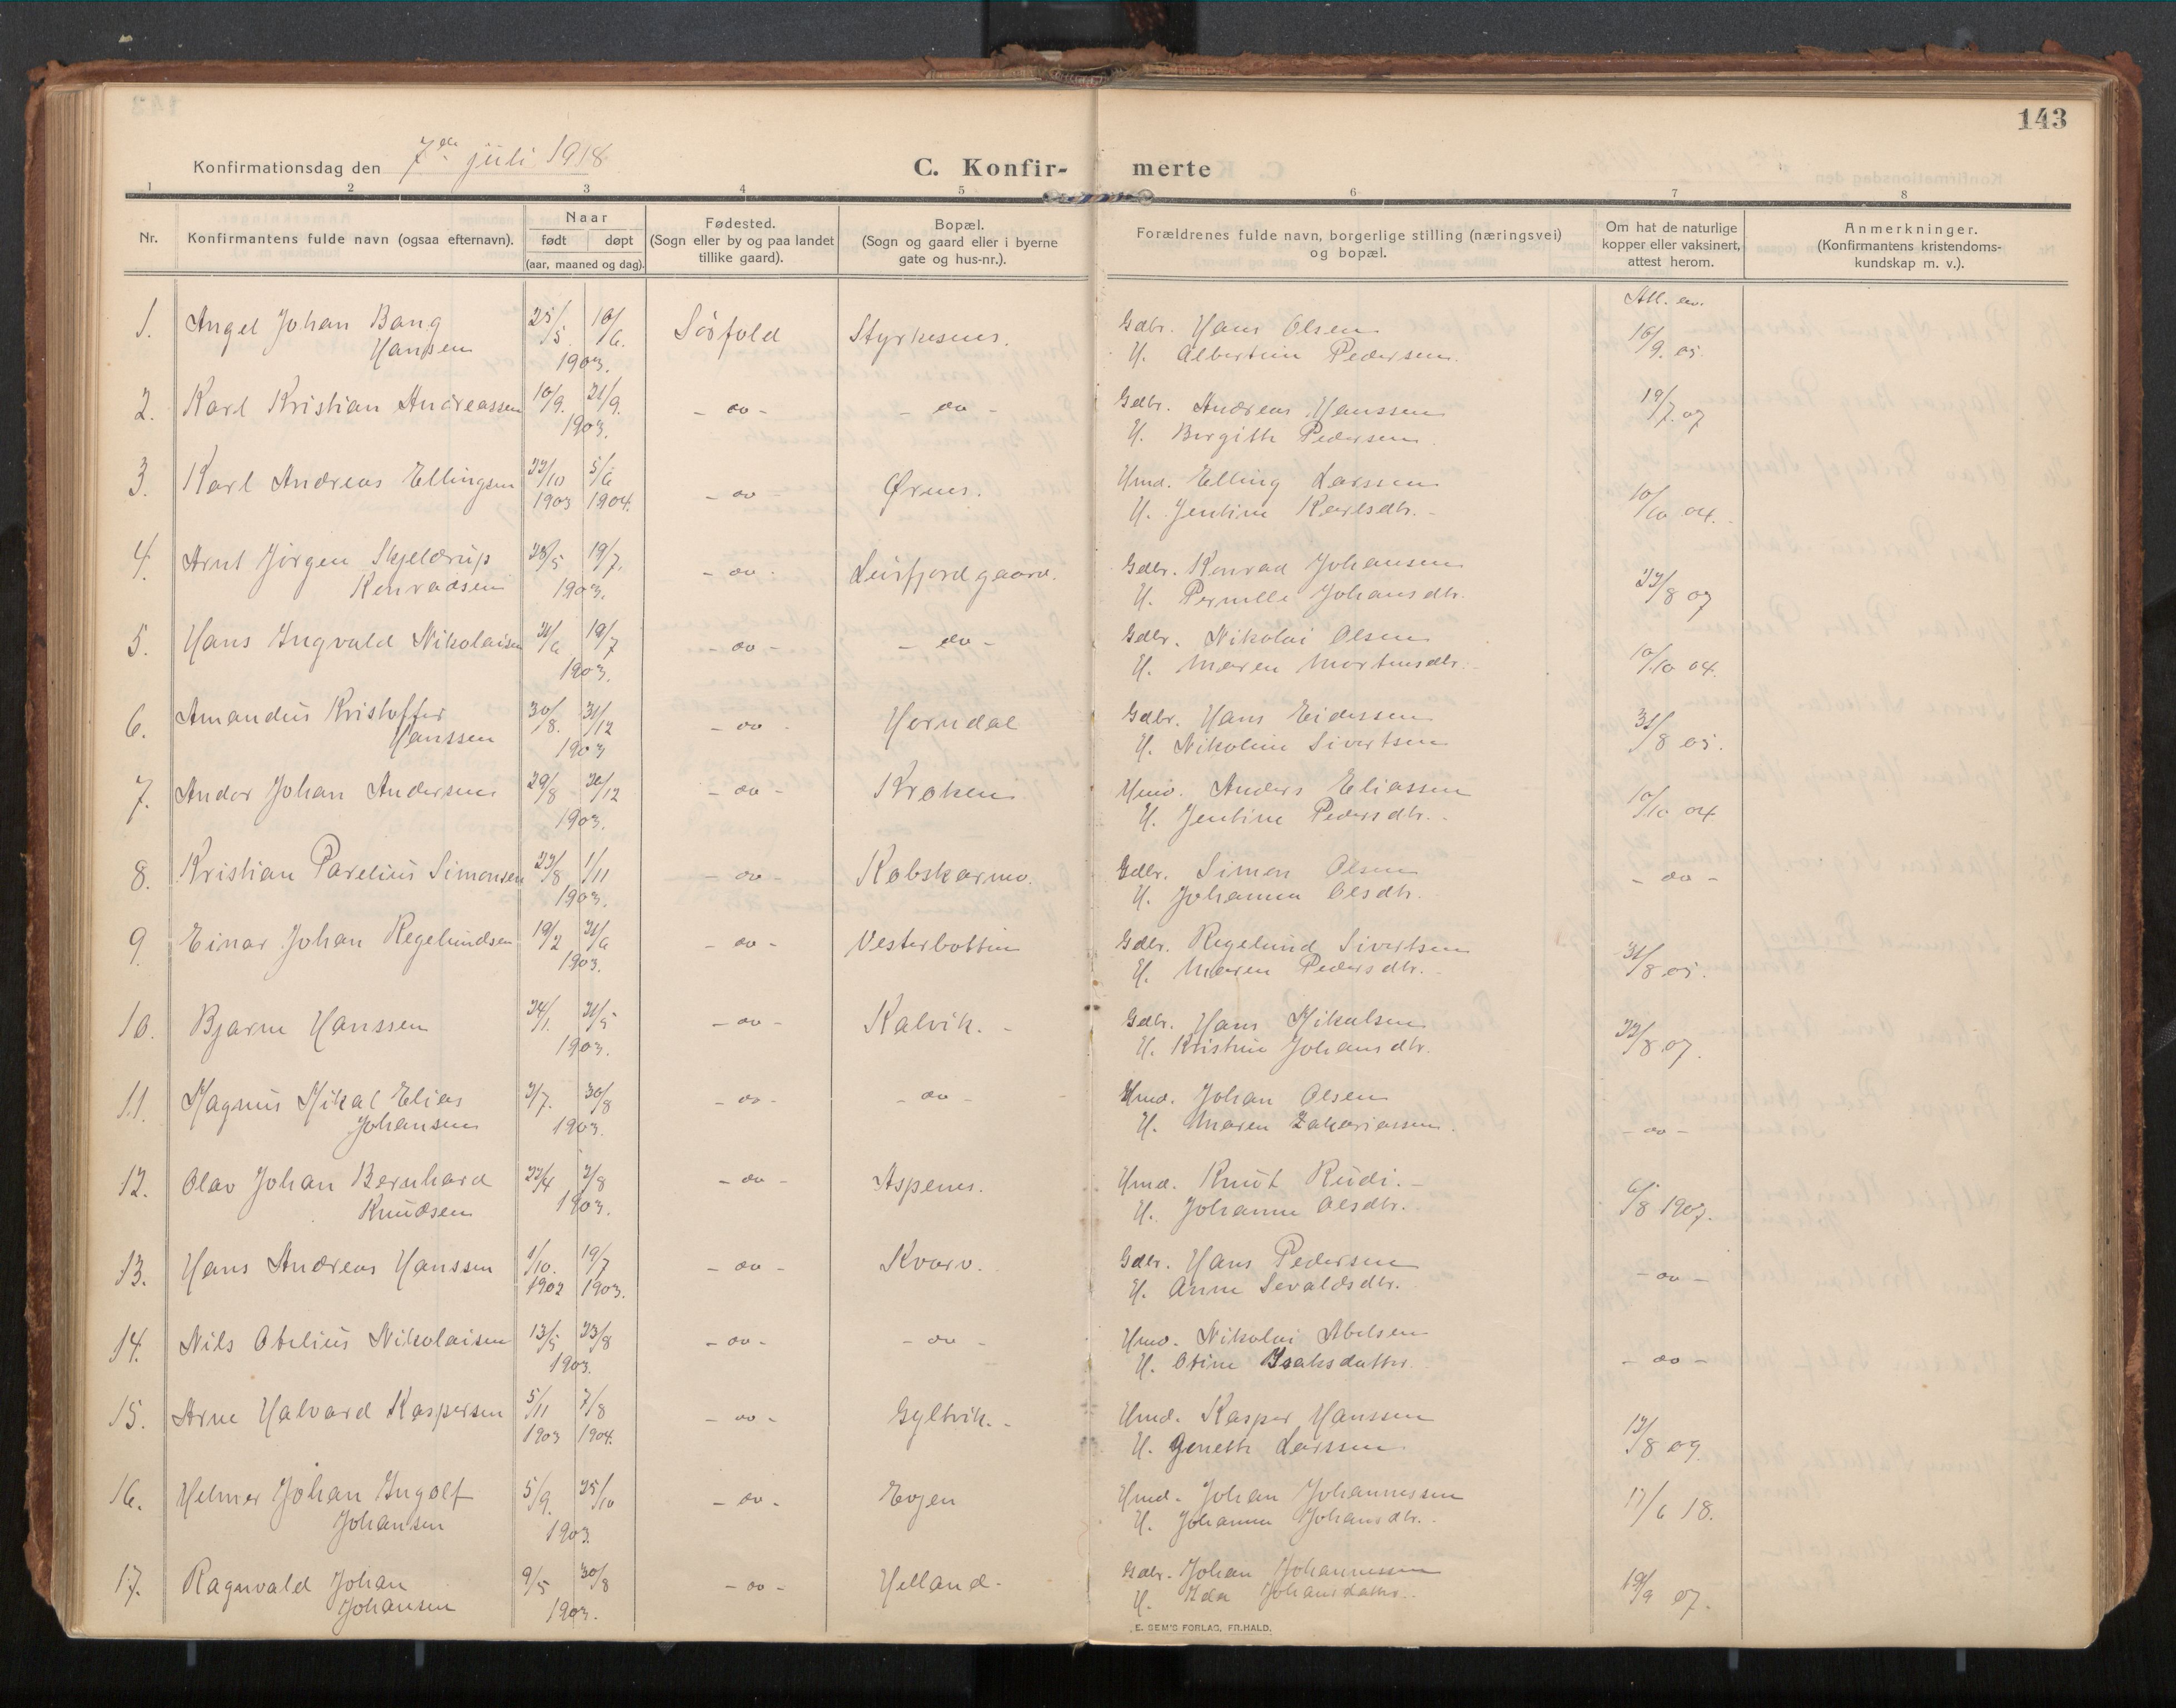 143
Konfirmationsdag den 7de juli 1918
C. Konfir- merte
1 2 3 4 5 6 7 8
Nr.
Konfirmantens fulde navn (ogsaa efternavn).
Naar
født døpt
(aar, maaned og dag).
Fødested.
(Sogn eller by og paa landet
tillike gaard).
Bopæl.
(Sogn og gaard eller i byerne
gate og hus-nr.).
Forældrenes fulde navn, borgerlige stilling (næringsvei)
og bopæl.
Om hat de naturlige
kopper eller vaksinert,
attest herom.
Anmerkninger.
(Konfirmantens kristendoms-
kundskap m. v.).
1. Angel Johan Bang 25/5. 1903. Sörfold Styrkesnes. Gdbr. Hans Olsen
Hansen H. Albertine Pedersen. 16/9. 05.
2. Karl Kristian Andreassen 10/9. 21/9. 1903. - do - - do - Gdbr. Andreas Hanssen 19/7. 07
H. Bergith Pedersen.
3. Karl Andreas Ellingsen 22/10 1903 5/6 1904. - do - Ørnes. Hmd. Elling Larssen
H. Jentine Karlsdtr. 10/10 04.
4. Arnt Jörgen Skjeldrup 28/5 19/7. 1903. - do - Leirfjordgaard. Gdbr. Konrad Johansen
Konradsen H. Pernelle Johansdtr. 22/8 07
5. Hans Ingvald Nikolaisen 21/6 19/7 1903. - do - - do - Gdbr. Nikolai Olsen
H. Maren Mortensdtr. 10/10 04.
6. Amandus Kristoffer 30/8. 31/12 1903 - do - Horndal Gdbr. Hans Eidessen
Hanssen H. Nikoline Sivertsen 31/8 05.
7. Andor Johan Andersen 29/8 1903. - do - Kroken Hmd. Anders Eliassen
H. Jentine Pedersdtr. 10/10 04
8. Kristian Parelius Simonsen 23/8 1/11 1903. - do - Kobskarmo. Gdbr. Simon Olsen - do -
H. Johanna Olsdtr.
9. Einar Johan Regelundsen 19/2 21/6 1903. - do - Vesterbotten Gdbr. Regelund Sivertsen
H. Maren Pedersdtr. 31/8 05.
10. Bjarne Hanssen 24/1. 31/5 1903. - do - Kalvik. Gdbr. Hans Mikalsen
H. Kristine Johansdtr. 22/8 07.
11. Magnus Mikal Elias 3/7. 30/8 1903. - do - - do - Hmd. Johan Olsen
Johansen H. Maren Zakariassen. - do -
12. Olav Johan Bernhard 22/4 2/8 1903. - do - Aspenes. Hmd. Knut Rudi.
Knudsen H. Johanne Olsdtr. 6/8 1907.
13. Hans Andreas Hanssen 1/10. 1902 19/7 1903. - do - Kvarv. Gdbr. Hans Pedersen
H. Anne Sevaldsdtr. - do -
14. Nils Otelius Nikolaisen 13/5 23/8 1903. - do - - do - Hmd. Nikolai Abelsen
H. Otine Isaksdatter. - do -
15. Arne Halvard Kaspersen 5/11 1903 7/8 1904. - do - Gyltvik. Hmd. Kasper Hanssen
H. Larssen 12/8 09
16. Helmer Johan Ingolf 5/9. 25/10 1903. - do - Evjen Hmd. Johan Johannessen
Johansen H. Johanna Johansdtr. 17/6 18.
17. Ragnvald Johan 9/5 30/8 1903. - do - Helland. Gdbr. Johan Johannessen
Johansen H. Ida Johansdatter. 19/9 07.
E. SEM'S FORLAG, FR.HALD.